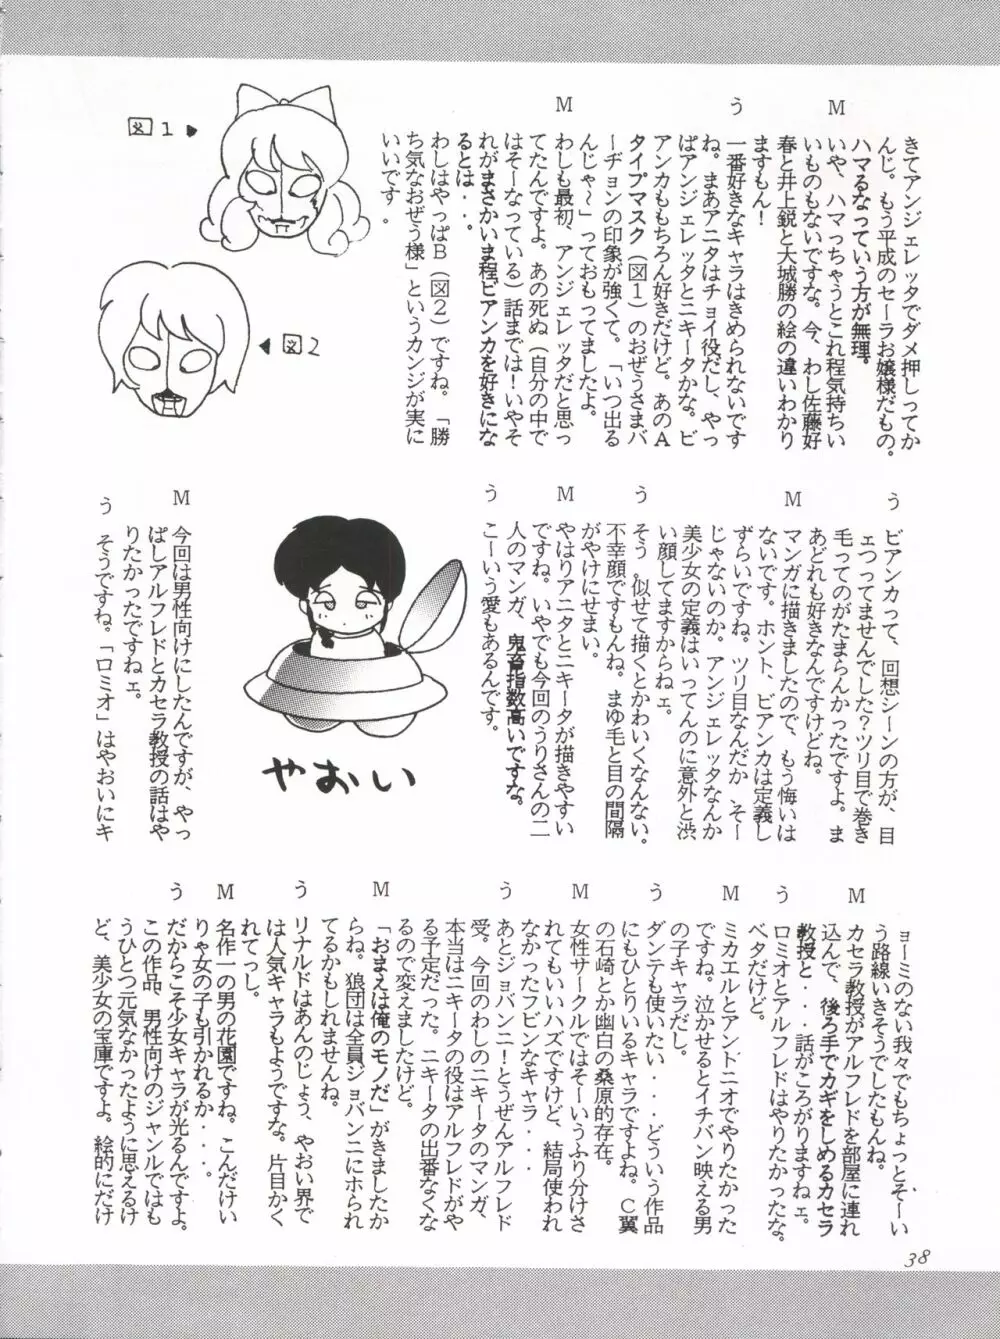 きてアンジェレッタでダメ押しってか
んじ。もう平成のセーラお嬢様だもの。
ハマるなっていう方が無理。
M
いや、ハマっちゃうとこれ程気持ちい
いものもないですな。今、わし佐藤好
春と井上鋭と大城勝の絵の違いわかり
ますもん！
う
一番好きなキャラはきめられないです
ね。まあアニタはチョイ役だし、やっ
ぱアンジェレッタとニキータかな。ビ
アンカももちろん好きだけど。あのA
タイプマスク（図1）のおぜうさまバ
ージョンの印象が強くて。「いつ出る
んじゃ〜」っておもってましたよ。
M
わしも最初、アンジェレッタだと思っ
てたんですよ。あの死ぬ（自分の中で
はそーなっている）話までは！いやそ
れがまさかいま程ビアンカを好きにな
るとは・・・
わしはやっぱB（図2）ですね。「勝
ち気なおぜう様」というカンジが実に
いいです。
図1
図2
う
ビアンカって、回想シーンの方が、目
ェつってませんでした？ツリ目で巻き
毛ってのがたまらんかったですよ。ま
あどれも好きなんですけどね。
M
マンガに描きましたので、もう悔いは
ないです。ホント、ビアンカは定義し
ずらいですね。ツリ目なんだか そー
じゃないのか。アンジェレッタなんか
美少女の定義はいってんのに意外と渋
い顔してますからねェ。
う
そう 似せて描くとかわいくなんない。
不幸顔ですもんね。まゆ毛と目の間隔
がやけにせまい。
M
やはりアニタとニキータが描きやすい
ですね。いやでも今回のうりさんの二
人のマンガ、鬼畜指数高いですな。
う
こーいう愛もあるんです。
やおい
M
今回は男性向けにしたんですが、やっ
ぱしアルフレドとカセラ教授の話はや
りたかったですねェ。
う
そうですね。「ロミオ」はやおいにキ
ョーミのない我々でもちょっとそーい
う路線いきそうでしたもんね。
M
カセラ教授がアルフレドを部屋に連れ
込んで、後ろ手でカギをしめるカセラ
教授と・・・話がころがりますねェ。
う
ロミオとアルフレドはやりたかったな。
ベタだけど。
M
ミカエルとアントニオでやりたかった
ですね。泣かせるとイチバン映える男
の子キャラだし。
う
ダンテも使いたい・・・どういう作品
にもひとりいるキャラですよね。C翼
の石崎とか幽白の桑原的存在。
M
女性サークルではそーいうふり分けさ
れてもいいハズですけど、結局使われ
なかったフビンなキャラ・・・
う
あとジョバンニ！とうぜんアルフレド
受。今回のわしのニキータのマンガ、
本当はニキータの役はアルフレドがや
る予定だった。ニキータの出番なくな
るので変えましたけど。
M
「おまえは俺のモノだ」がきましたか
らね。狼団は全員ジョバンニにホられ
てるかもしれませんね。
う
リナルドはあんのじょう、やおい界で
は人気キャラもようですな。片目かく
れてっし。
M
名作一の男の花園ですね。こんだけい
りゃ女の子も引かれるか・・・
う
だからこそ少女キャラが光るんですよ。
この作品、男性向けのジャンルではも
うひとつ元気なかったように思えるけ
ど、美少女の宝庫ですよ。絵的にだけ
38